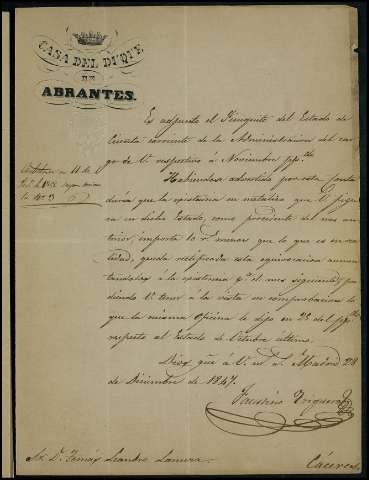 CASA DEL DUQUE
DE
ABRANTES.
Es adjunto el Finiquito del Estado de
Cuenta corriente de la Administracion del car
go de V. respectivo á Noviembre pp.do
Habiendose advertido por esta Conta
duria que la ecsistencia en metalico que V. figu
ra en dicho Estado, como procedente de mes an
terior, importa 10 r.s menos que lo que es en rea
lidad, queda rectificada esta equivocacion aumen
tandolas á la ecsistencia p.a el mes siguiente, pu
diendo V. tener á la vista en comprobacion lo
que la misma Oficina le dijo en 25 del pp.do
respecto al Estado de Octubre último.
Dios gue. á V. m.s a.s Madrid 28
de Diciembre de 1847.
Faustino
Sr. D. Tomas Leandro
Cáceres.